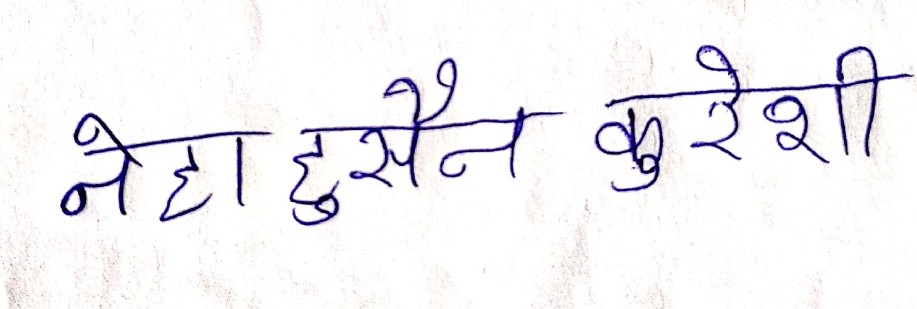 नेहा हुसैन कुरेशी